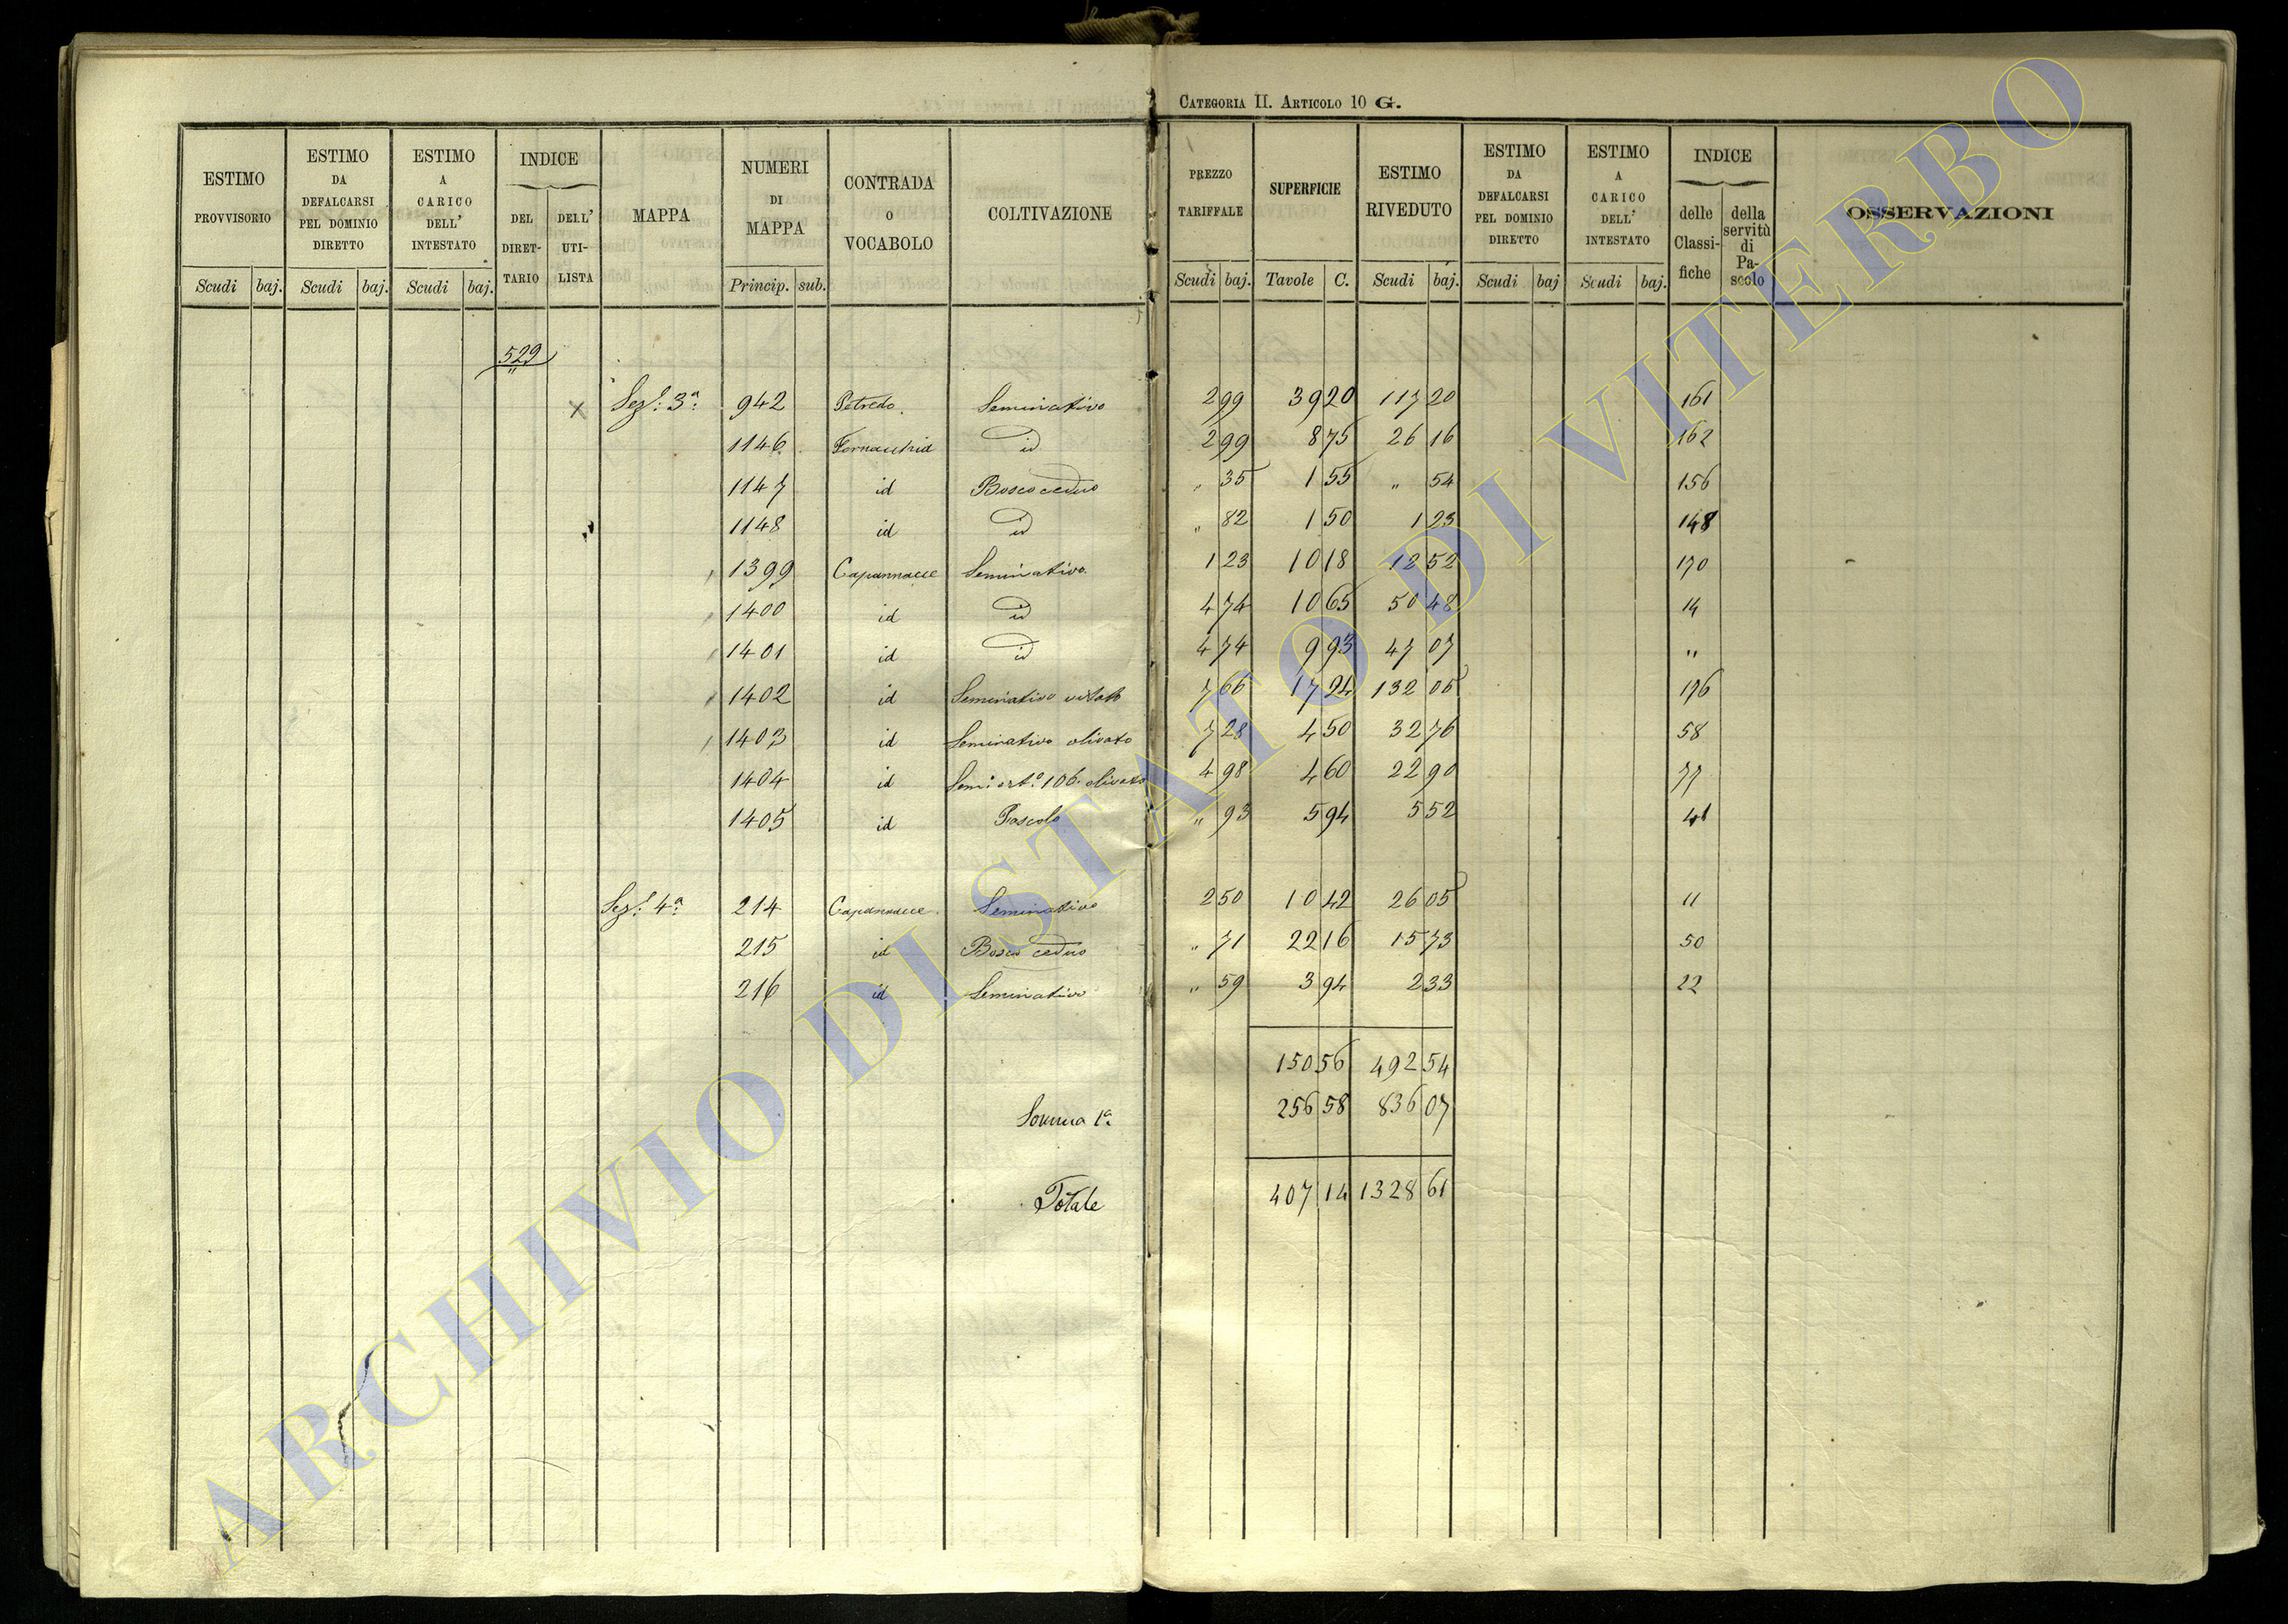 CATEGORIA II. ARTICOLO 10 G.
ESTIMO PROVVISORIO Scudi baj. ESTIMO DA DEFALCARSI PEL DOMINIO DIRETTO Scudi baj. ESTIMO A CARICO DELL' INTESTATO Scudi baj. INDICE DEL DIRET- TARIO DELL' UTI- LISTA MAPPA NUMERI DI MAPPA Princip. sub. CONTRADA O VOCABOLO COLTIVAZIONE PREZZO TARIFFALE Scudi baj. SUPERFICIE Tavole C. ESTIMO RIVEDUTO Scudi baj. ESTIMO DA DEFALCARSI PEL DOMINIO DIRETTO Scudi baj ESTIMO A CARICO DELL' INTESTATO Scudi baj. INDICE delle Classi- fiche della servitù di Pa- scolo OSSERVAZIONI
529
x Sez.e 3a 942 Petredo. Seminativo 2 99 39 20 117 20 161
1146 Fornacchia id 2 99 8 75 26 16 162
1147 id Bosco ceduo „ 35 1 55 „ 54 156
1148 id id „ 82 1 50 1 23 148
1399 Capannacce Seminativo 1 23 10 18 12 52 170
1400 id id 4 74 10 65 50 48 14
1401 id id 4 74 9 93 47 07 „
1402 id Seminativo vitato 7 66 17 24 132 05 176
1403 id Seminativo olivato 7 28 4 50 32 76 58
1404 id olivato 4 98 4 60 22 90 77
1405 id Pascolo „ 93 5 94 5 52 41
Sez.e 4a 214 Capannacce Seminativo 2 50 10 42 26 05 11
215 id Bosco ceduo „ 71 22 16 15 73 50
216 id Seminativo „ 59 3 94 2 33 22
150 56 492 54
Somma 1a 256 58 836 07
Totale 407 14 1328 61
ARCHIVIO DI STATO DI VITERBO